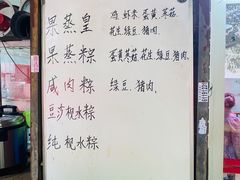 果蒸皇 鸡.虾米.蛋黄.冬菇.
花生.绿豆.猪肉.
果蒸粽 蛋黄.冬菇.花生.绿豆.猪肉.
咸肉粽 绿豆.猪肉.
豆沙枧水粽
纯枧水粽